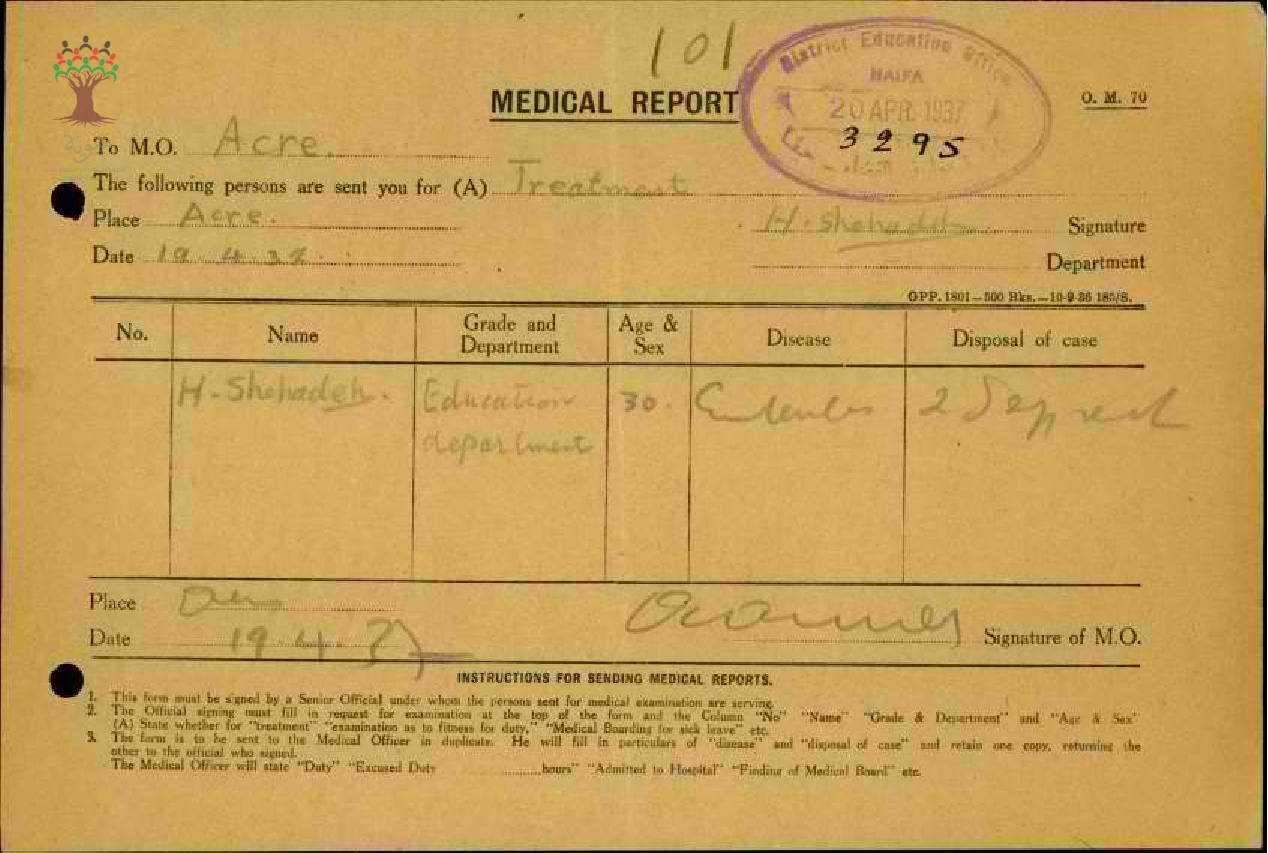 101
District Education Office
HAIFA
20 APR. 1937
3295
MEDICAL REPORT
O. M. 70
To M.O. Acre.
The following persons are sent you for (A) Treatment
Place Acre.
H. Shehadeh Signature
Date 19.4.37.
Department
GPP. 1801—500 Bks.—10-9-36 185/S.
No. Name Grade and Department Age & Sex Disease Disposal of case
H. Shehadeh. Education department 30. 2 days rest
Place
Date 19.4.37
Signature of M.O.
INSTRUCTIONS FOR SENDING MEDICAL REPORTS.
1. This form must be signed by a Senior Official under whom the persons sent for medical examination are serving.
2. The Official signing must fill in request for examination at the top of the form and the Column "No" "Name" "Grade & Department" and "Age & Sex"
(A) State whether for "treatment" "examination as to fitness for duty," "Medical Boarding for sick leave" etc.
3. The form is to be sent to the Medical Officer in duplicate. He will fill in particulars of "disease" and "disposal of case" and retain one copy, returning the
other to the official who signed.
The Medical Officer will state "Duty" "Excused Duty ............hours" "Admitted to Hospital" "Finding of Medical Board" etc.